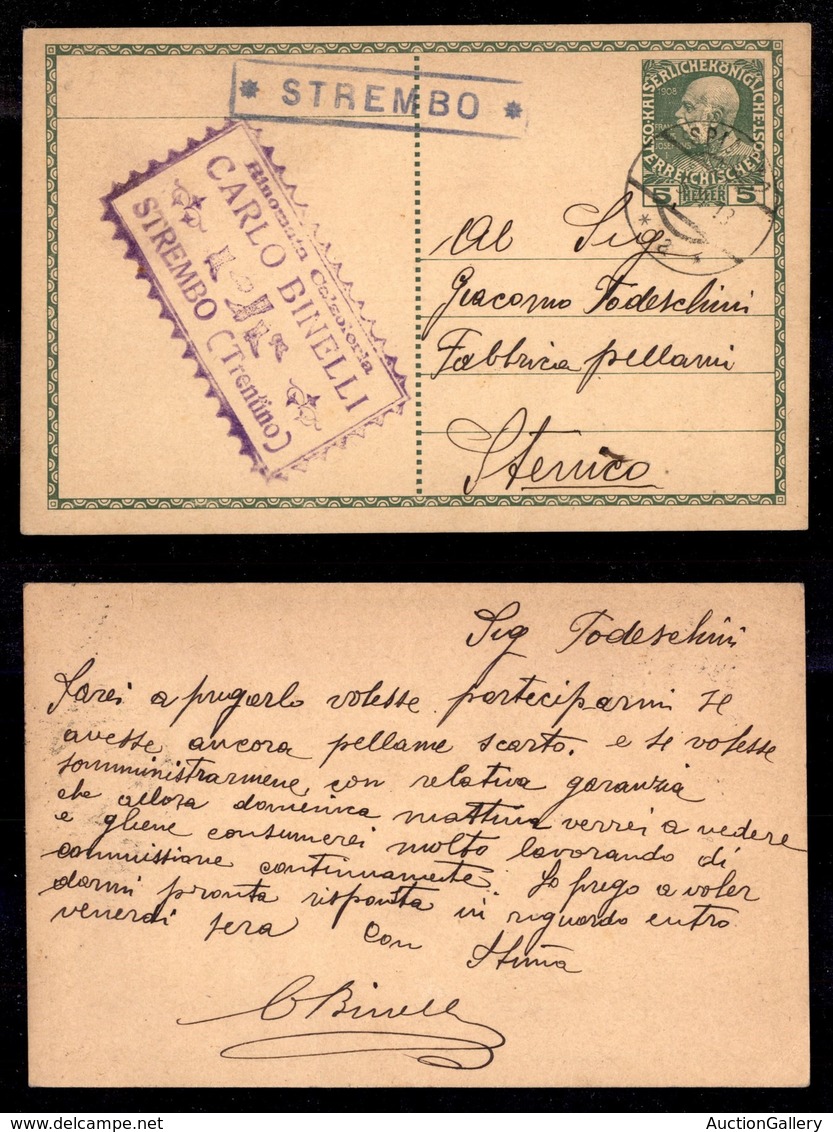 * STREMBO *
Rinomata Calzoleria
CARLO BINELLI
STREMBO (Trentino)
KAISERLICHEKÖNIGLICHE
ÖSTERREICHISCHE
1908
5 HELLER 5
13
* a *
Al Sig
Giacomo Todeschini
Fabbrica pellami
Stenico
Sig Todeschini
Sarei a pregarlo volesse parteciparmi se
avesse ancora pellame scarto. e se volesse
somministrarmene con relativa garanzia
che allora domenica mattina verrei a vedere
e gliene consumerei molto lavorando di
commissione continuamente. Lo prego a voler
darmi pronta risposta in riguardo entro
venerdi sera con
Stima
C Binelli
AuctionGallery